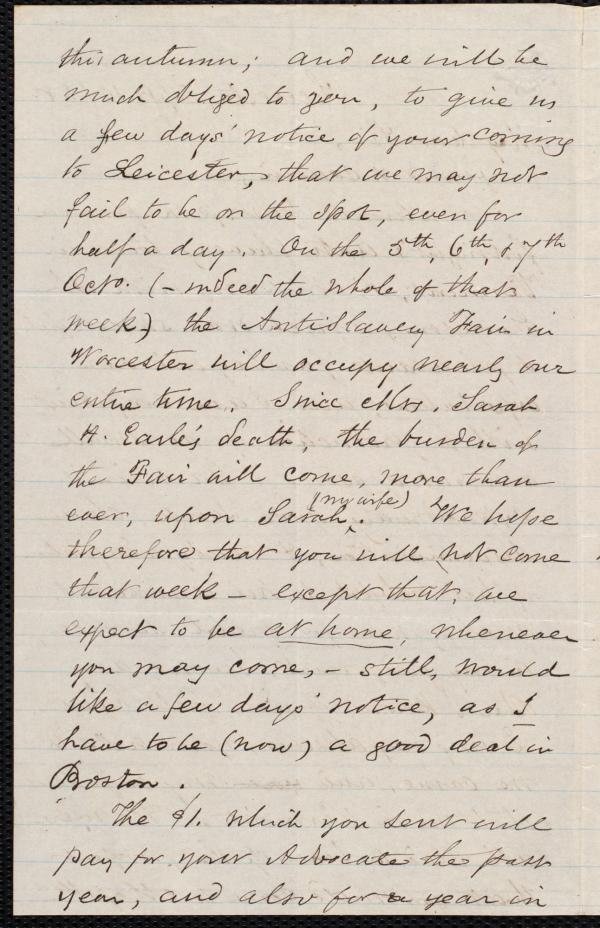 this autumn; and we will be
much obliged to you, to give us
a few days' notice of your coming
to Leicester, that we may not
fail to be on the spot, even for
half a day. On the 5th, 6th, & 7th
Octo. (– indeed the whole of that
week) the AntiSlavery Fair in
Worcester will occupy nearly our
entire time. Since Mrs. Sarah
H. Earle's death, the burden of
the Fair will come, more than
(my wife)
ever, upon Sarah. We hope
therefore that you will not come
that week – except that, we
expect to be at home, whenever
you may come, – still, would
like a few days' notice, as I
have to be (now) a good deal in
Boston.
The $1. which you sent will
pay for your Advocate the past
year, and also for a year in